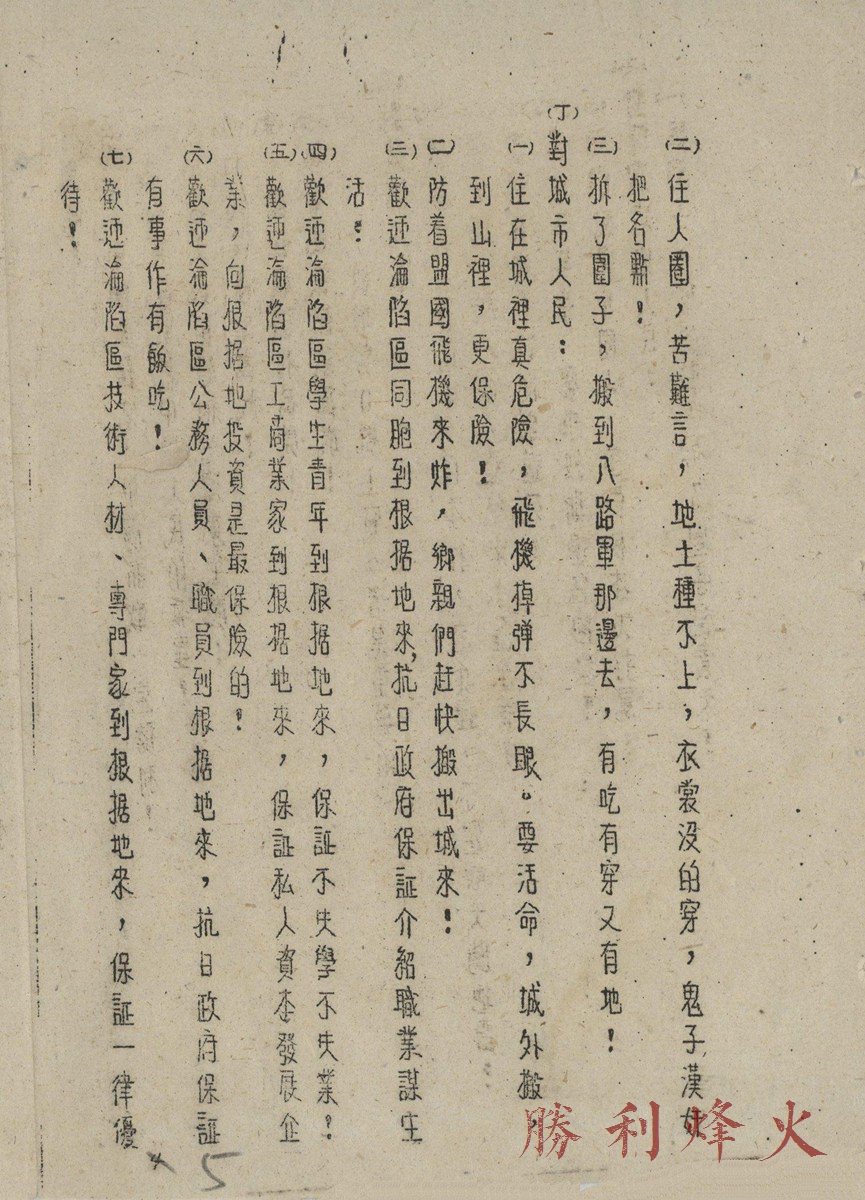 (二)住人圈,苦難言,地土種不上,衣裳没的穿,鬼子漢奸
把名點!
(三)拆了圍子,搬到八路軍那邊去,有吃有穿又有地!
(丁)對城市人民:
(一)住在城裡真危險,飛機掉弹不長眼。要活命,城外搬,
到山裡,更保險!
(二)防着盟國飛機來炸,鄉親們赶快搬出城來!
(三)歡迎淪陷區同胞到根据地來,抗日政府保証介紹職業謀生
活!
(四)歡迎淪陷區學生青年到根据地來,保証不失學不失業!
(五)歡迎淪陷區工商業家到根据地來,保証私人資本發展企
業,向根据地投資是最保險的!
(六)歡迎淪陷區公務人員、職員到根据地來,抗日政府保証
有事作有飯吃!
(七)歡迎淪陷區技術人材、專門家到根据地來,保証一律優
待!
4
5
勝利烽火